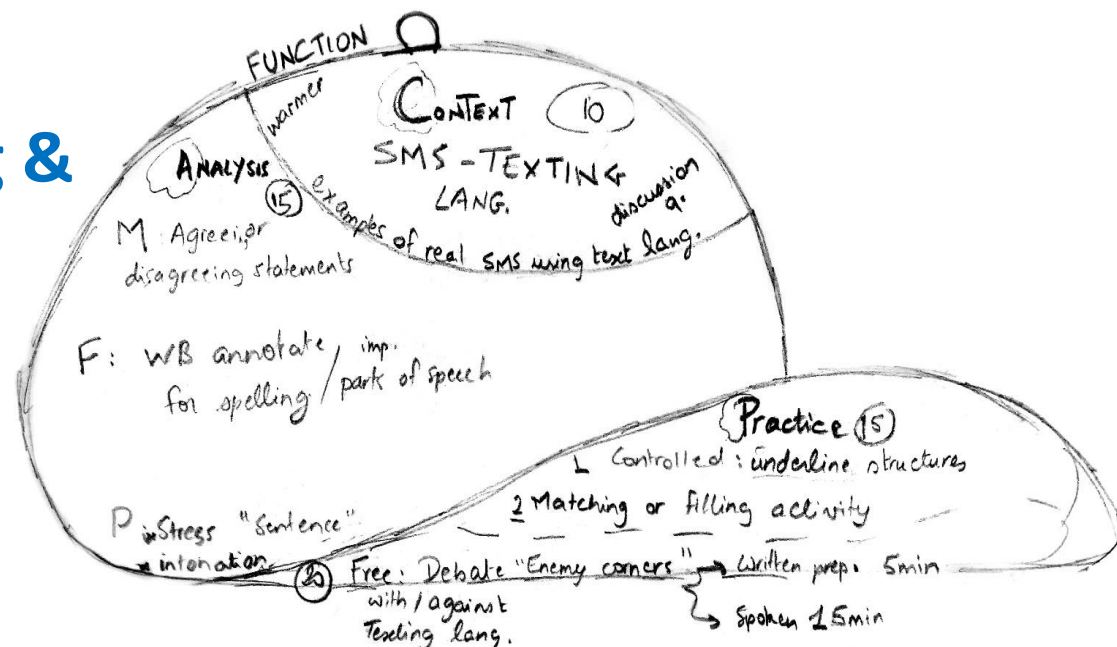 g &
FUNCTION
warmer
CONTEXT 10
SMS - TEXTING
LANG.
discussion
q.
examples of real SMS using text lang.
ANALYSIS
15
M: Agreeing or
disagreeing statements
F: WB annotate / imp.
for spelling / part of speech
P * Stress "Sentence"
* intonation
Practice 15
1 Controlled : underline structures
2 Matching or filling activity
20 Free: Debate "Enemy corners" → Written prep. 5min
with / against
Texting lang.
→ Spoken 15min